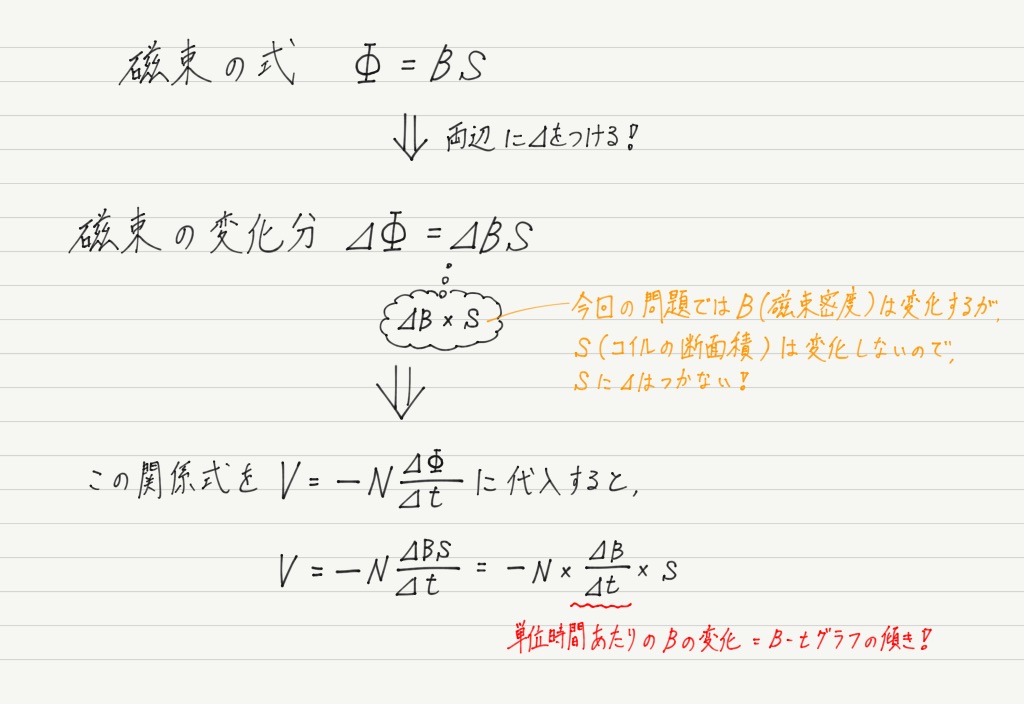 磁束の式 Φ = BS
⇓ 両辺にΔをつける!
磁束の変化分 ΔΦ = ΔBS
ΔB × S
今回の問題ではB(磁束密度)は変化するが,
S(コイルの断面積)は変化しないので,
SにΔはつかない!
⇓
この関係式を V = −N ΔΦ/Δt に代入すると,
V = −N ΔBS/Δt = −N × ΔB/Δt × S
単位時間あたりのBの変化 = B-tグラフの傾き!